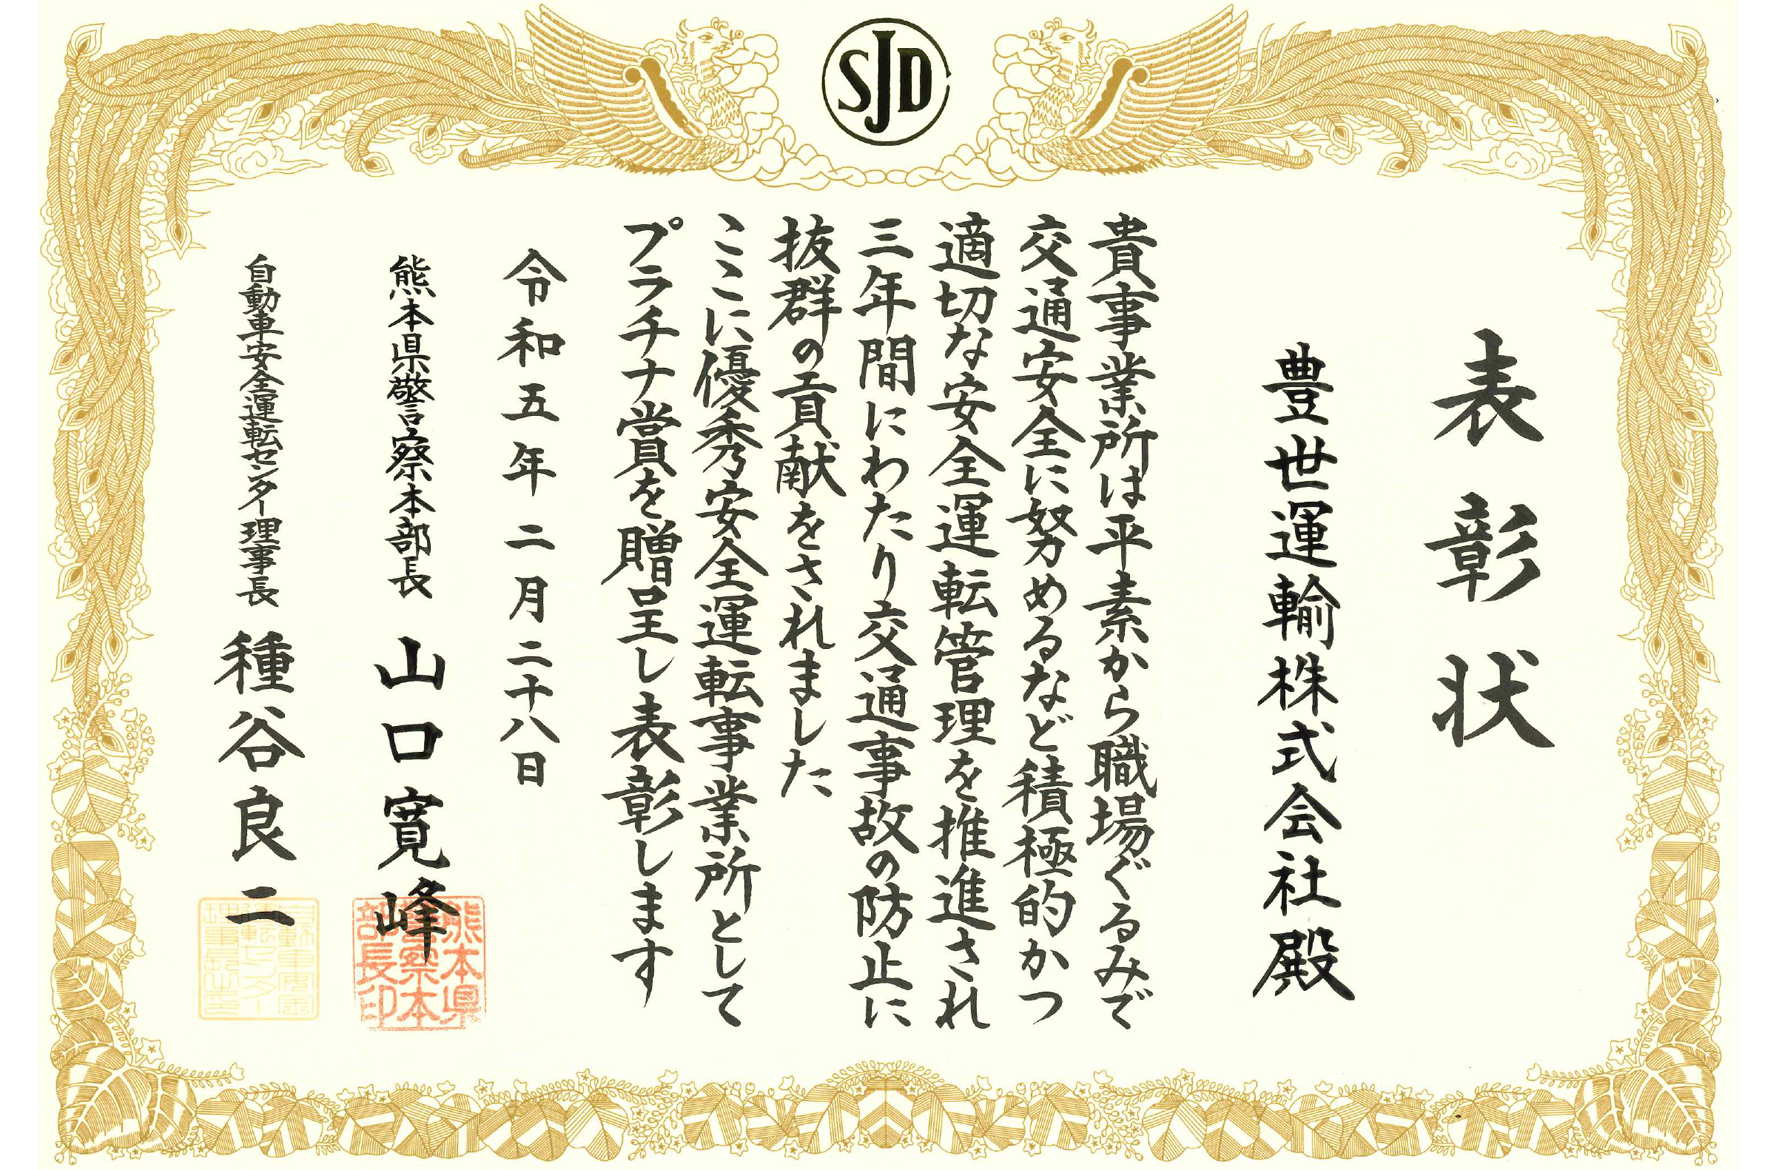 SJD
表彰状
豊世運輸株式会社殿
貴事業所は平素から職場ぐるみで
交通安全に努めるなど積極的かつ
適切な安全運転管理を推進され
三年間にわたり交通事故の防止に
抜群の貢献をされました
ここに優秀安全運転事業所として
プラチナ賞を贈呈し表彰します
令和五年二月二十八日
熊本県警察本部長 山口寛峰
熊本県
警察本
部長印
自動車安全運転センター理事長 種谷良二